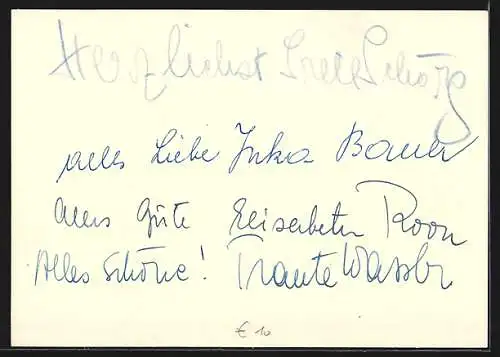 Herzlichst Greta Schörg
alles Liebe Inka Bauer
Alles Gute Elisabeth Roon
Alles Schöne! Traute Wassler
€ 10